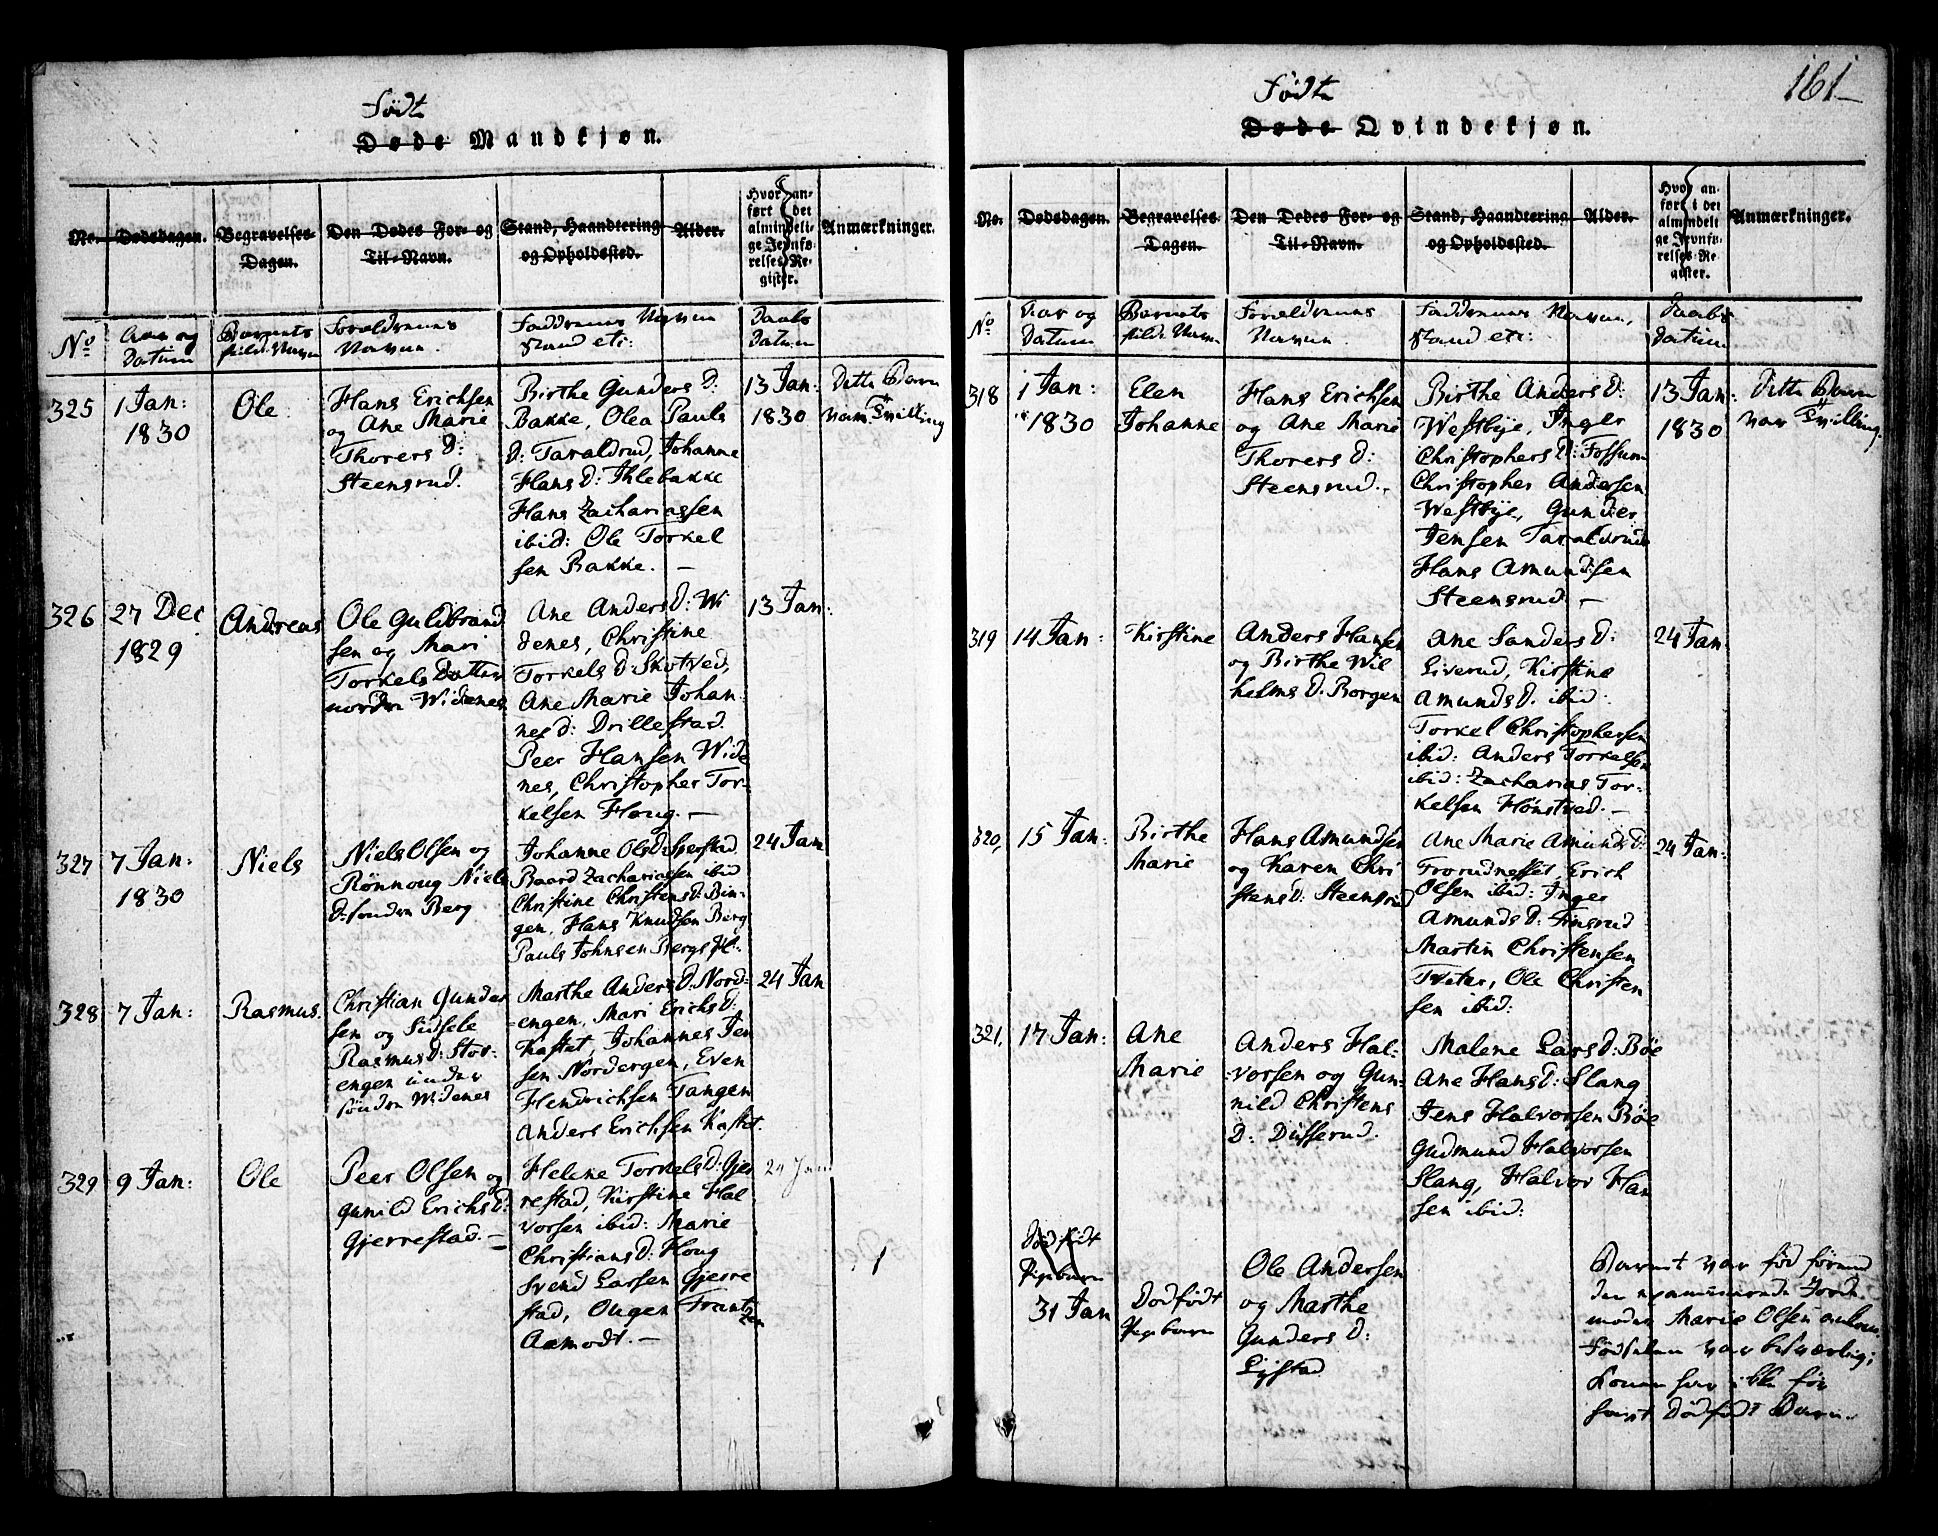 Födt
Døde Mandkjøn.
No.
Dødsdagen.
Begravelses-
Dagen.
Den Dødes For- og
Til-Navn.
Stand, Haandtering
og Opholdssted.
Alder.
Hvor an-
ført i det
almindeli-
ge Jevnfø-
relses-Re-
gister.
Anmærkninger.
No
Aar og
Datum
Barnets
fulde Navn
Foreldrenes
Navne.
Faddrenes Navne
Stand etc:
Daabs
Datum
325
1 Jan:
1830
Ole
Hans Erichsen
og Ane Marie
Thorers D:
Steensrud.
Birthe Gunders D:
Bakke, Olea Pauls
D: Taraldrud, Johanne
Hans D: Ihlebakke
Hans Zachariassen
ibid: Ole Torkel
sen Bakke. —
13 Jan:
1830
Dette Barn
var Tvilling
326
27 Dec
1829
Andreas
Ole Guldbrand
sen og Mari
Torkels Datter
nordre Widenes
Ane Anders D: Wi
denes, Christine
Torkels D: Skotved,
Ane Marie Johan-
nes D: Drillestad
Peer Hansen Wide
nes, Christopher Tor-
kelsen Houg. —
13 Jan:
327
7 Jan:
1830
Niels
Niels Olsen og
Rönnoug Niels
D: söndre Berg
Johanne Ols D: Sperstad
Baard Zachariasen ibid
Christine Christens D: Bin-
gen, Hans Knudsen Berg
Pauls Johnsen Bergs H:
24 Jan
328
7 Jan:
Rasmus.
Christian Gunder
sen og Sidsele
Rasmus D: Stor-
engen under
söndre Widenes
Marthe Anders D: Nord-
engen, Mari Erichs D:
Kastet, Johannes Jen
sen Nordengen, Even
Hendrichsen Tangen
Anders Erichsen Kastet.
24 Jan
329
9 Jan:
Ole
Peer Olsen og
Gunild Erichs D:
Gjerrestad. —
Helene Torkels D: Gjer
restad, Kirstine Hal
vorsen ibid: Marie
Christians D: Houg
Svend Larsen Gjerre
stad, Ougen Frant
zen
Aamodt. —
24 Jan
1
161
Födte
Døde Qvindekjøn.
No.
Dødsdagen.
Begravelses-
Dagen.
Den Dødes For- og
Til-Navn.
Stand, Haandtering
og Opholdssted.
Alder.
Hvor an-
ført i det
almindelt
ge Jevnfø-
relses-Re-
gister.
Anmærkninger.
No
Aar og
Datum
Barnets
fulde Navn
Foreldrenes
Navne
Faddrenes Navne,
Stand etc:
Daabs
Datum
318
1 Jan:
1830
Elen
Johanne
Hans Erichsen
og Ane Marie
Thorers D:
Steensrud. —
Birthe Anders D:
Westbye, Inger
Christophers D: Fossum
Christopher Andersen
Westbye, Gunder
Jensen Taraldrud
Hans Amundsen
Steensrud —
13 Jan:
1830
Dette Barn
var Tvilling.
319
14 Jan:
Kirstine
Anders Hansen
og Birthe Wil
helms D: Borgen
Ane Sanders D:
Liverud, Kirstine
Amunds D. ibid:
Torkel Christophersen
ibid: Anders Torkelsen
ibid: Zacharias Tor-
kelsen Hönstved. —
24 Jan:
320,
15 Jan:
Birthe
Marie
Hans Amundsen
og Karen Chri
stens D: Steensrud
Ane Marie Amunds D:
Frorudnesset, Erich
Olsen ibid: Inger
Amunds D: Finsrud
Martin Christensen
Tveter, Ole Christen
sen ibid:
24 Jan:
321,
17 Jan:
Ane
Marie
Anders Hal-
vorsen og Gun-
nild Christens
D: Dusserud.
Malene Lars D: Böe
Ane Hans D: Slang
Jens Halvorsen Böe
Gudmund Halvorsen
Slang, Halvor Han
sen ibid:
Dödfödt
Pigebarn
31 Jan
Dodfödt
Pigebarn
Ole Andersen
og Marthe
Gunders D:
Lystad
Barnet var fød förend
den examinerede Jorde-
moder Marie Olsen ankom.
Födselen var besværlig;
Konen har ikke før
havt Dödfödt Barn.